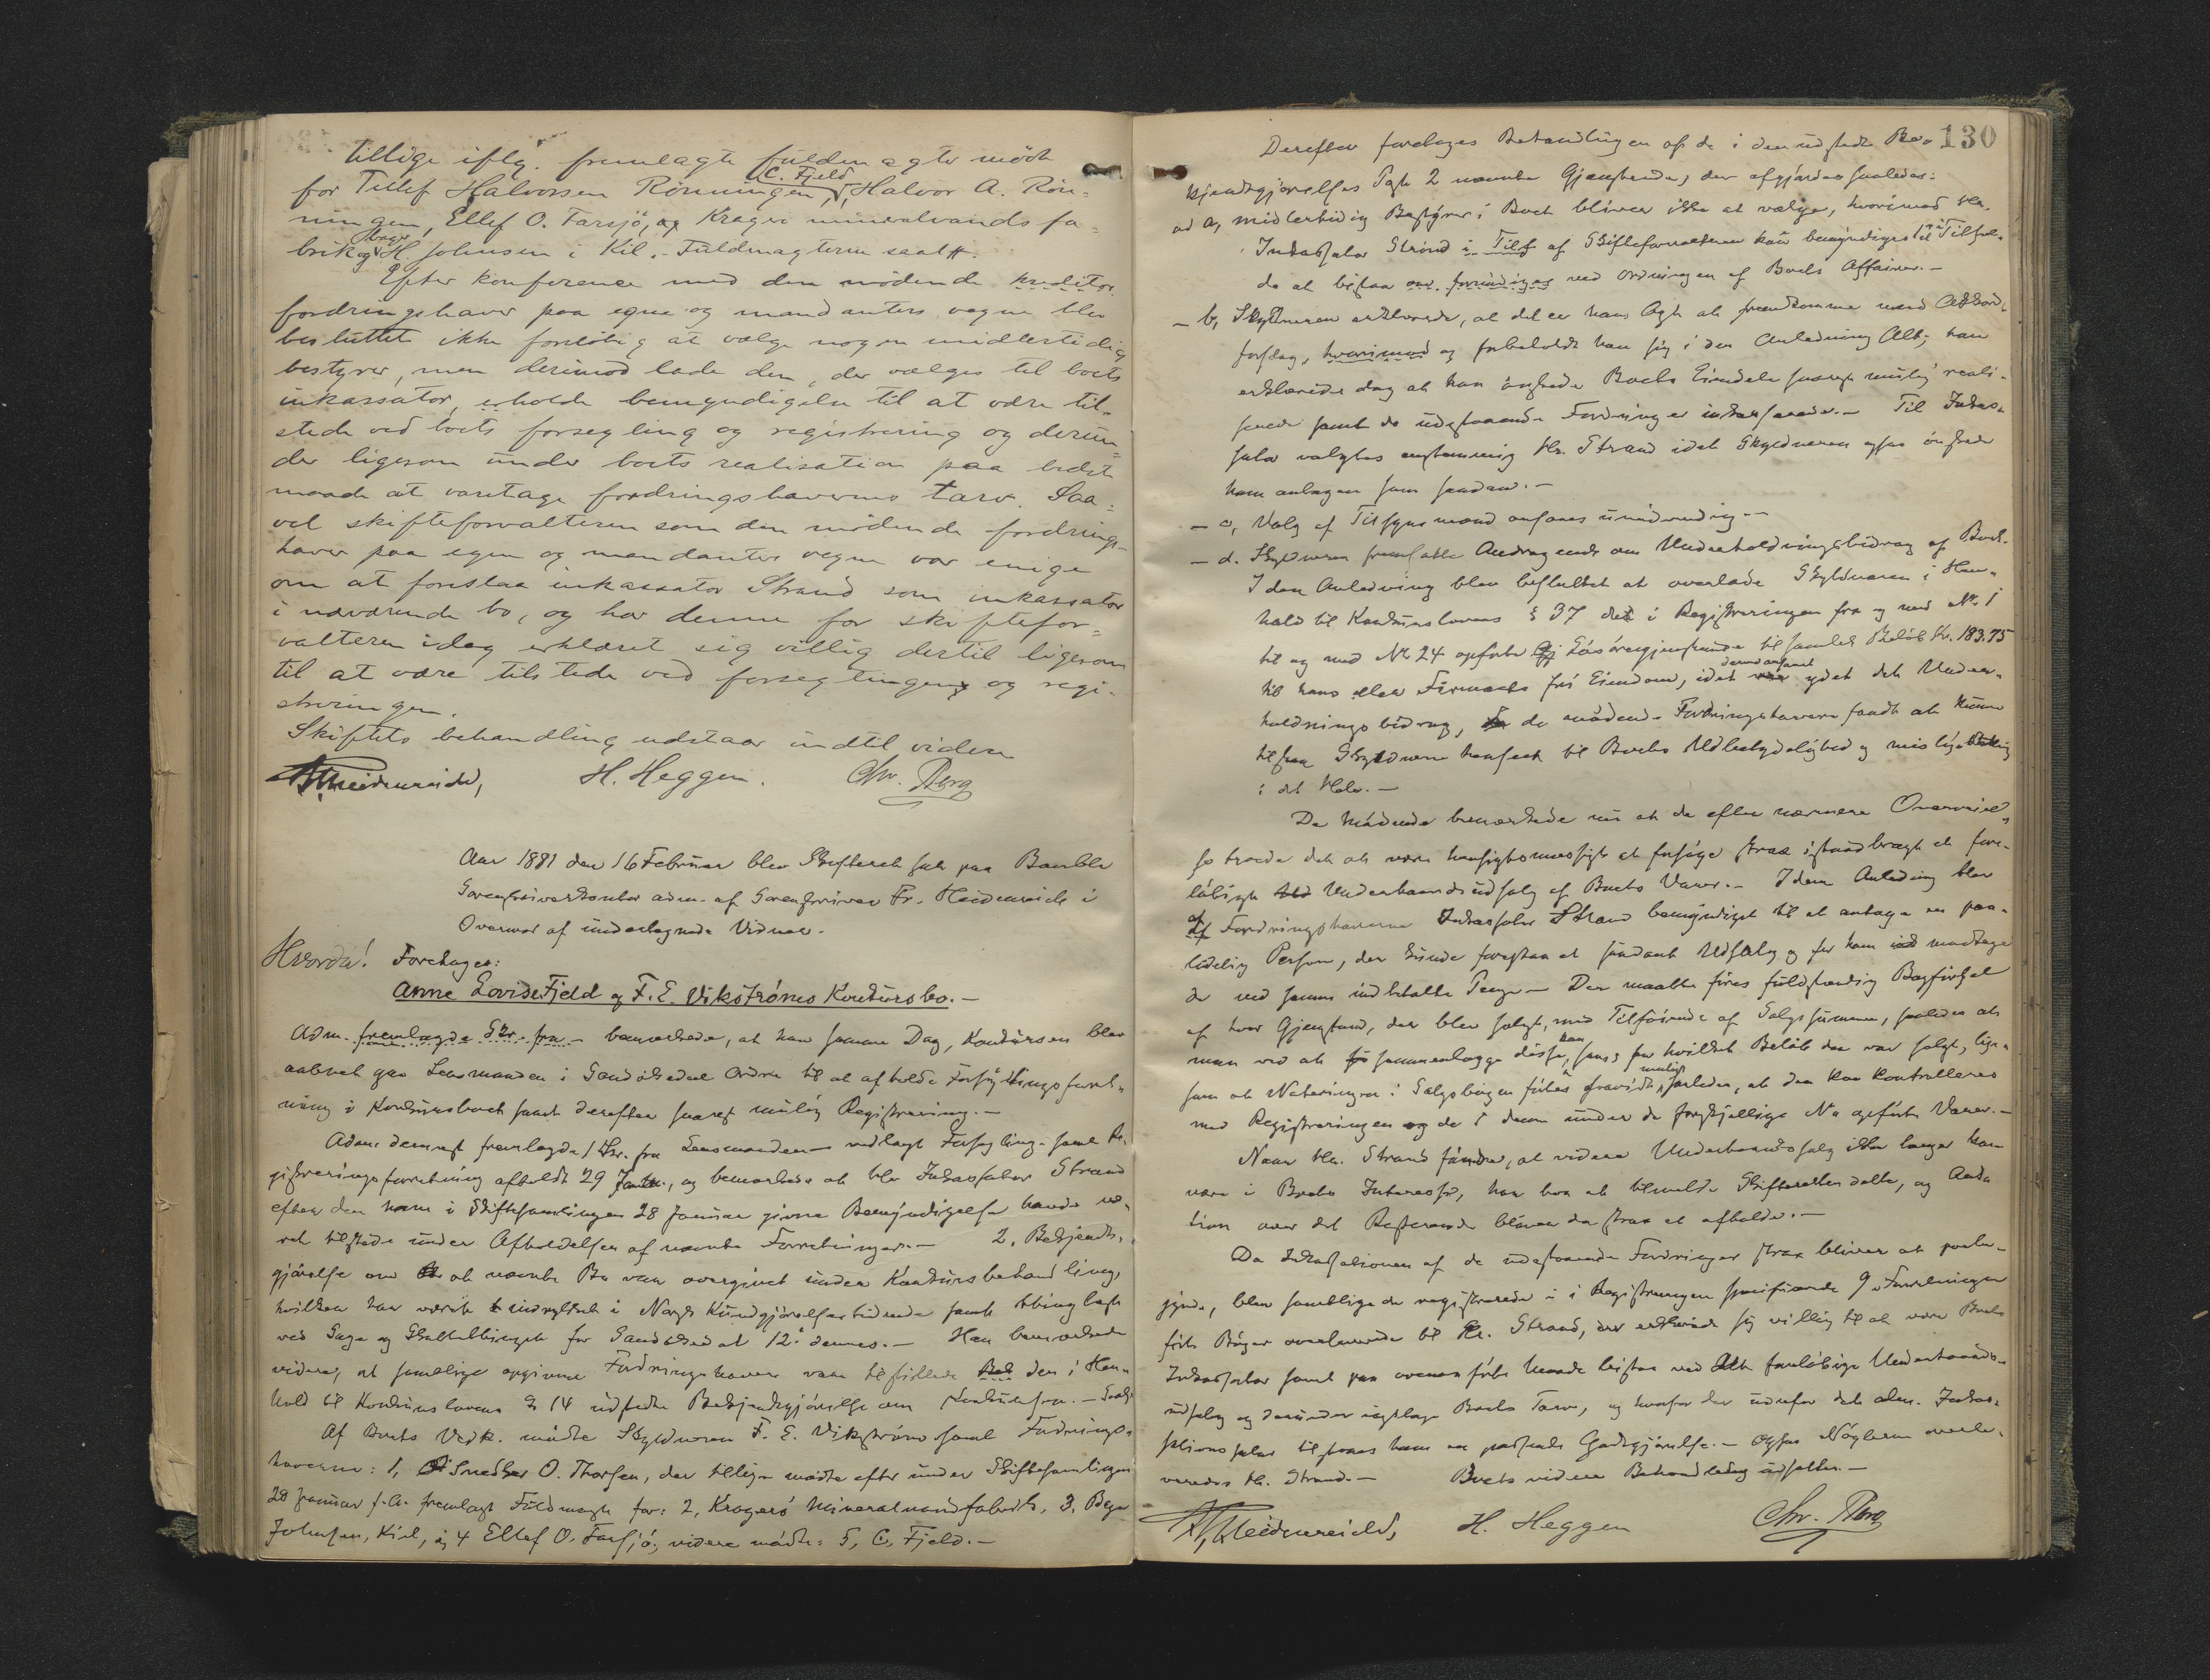 tillige iflg. fremlagte fuldmagter mödte
C. Fjeld
for Tellef Halvorsen Rönningen, Halvor A. Rön-
ningen, Ellef O. Farsjö, og Kragerö mineralvands fa-
brik og Bager H. Johnsen i Kil. - Fuldmagterne saal#.
Efter konference med den mödende kreditor
fordringshaver paa egne og mandanters vegne blev
besluttet ikke forelöbig at vælge nogen midlertidig
bestyrer, men derimod lade den, der vælges til boets
inkassator, erholde bemyndigelse til at være til-
stede ved boets forsegling og registrering og derun-
der ligesom under boets realisation paa bedste
maade at varetage fordringshavernes tarv. Saa-
vel skifteforvalteren som den mödende fordrings-
haver paa egne og mandanters vegne var enige
om at foreslaa inkassator Strand som inkassator
i nærværende bo, og har denne for skiftefor-
valteren idag erklæret sig villig dertil ligesom
til at være tilstede ved forseglingen og regi-
streringen.
Skiftets behandling udstaar indtil videre
Heidenreich, H. Heggen. Chr. Berg
Aar 1881 den 16 Februar blev Skifteret sat paa Bamble
Sorenskriverkontor adm. af Sorenskriver Fr. Heidenreich i
Overvær af undertegnede Vidner.
Hvorda! Foretages:
Anne Lovise Fjeld og F. E. Vikströms Konkursbo. -
Adm. fremlagde Skr. fra - bemærkede, at han samme Dag, Konkursen blev
aabnet gav Lensmanden i Sandökedal Ordre til at afholde Forseglingsforret-
ning i Konkursboet samt derefter snarest mulig Registrering. -
Adm. dernæst fremlagde 1 Skr. fra Lensmanden vedlagt Forsegling- samt Re-
gistreringsforretning afholdt 29 Janr., og bemærkede at Hr. Inkassator Strand
efter den ham i Skiftesamlingen 28 Januar givne Bemyndigelse havde væ-
ret tilstede under Afholdelsen af nævnte Forretninger. - 2, Bekjendt-
gjörelse om at nævnte Bo var overgivet under Konkursbehandling,
hvilken har været indrykket i Norsk Kundgjörelsestidende samt thinglæst
ved Sage og Skattethinget for Sandökedal 12' dennes. - Han bemærkede
videre, at samtlige opgivne Fordringshavere vare tilstillede den i Hen-
hold til Konkurslovens § 14 udstedte Bekjendtgjörelse om Konkursen. -
Af Boets Vedk. mödte Skyldneren F. E. Vikström samt Fordrings-
haverne: 1, Snedker O. Thorsen, der tillige mödte efter under Skiftesamlingen
28 Januar f.A. fremlagt Fuldmagt for: 2, Kragerö Mineralvandfabrik, 3, Bager
Johnsen, Kiel, og 4 Ellef O. Farsjö; videre mödte: 5, C. Fjeld. -
130
Derefter foretoges Behandlingen af de i den udstedte Be-
kjendtgjörelses Post 2 nævnte Gjenstande, der afgjordes saaledes:
ad a, midlertidig Bestyrer i Boet bliver ikke at vælge, hvorimod Hr.
Inkassator Strand i Tilf af Skifteforvalteren kan bemyndiges til i Tilfæl-
de at bistaa ved Ordningen af Boets Affairer. -
- b, Skyldneren erklærede, at det er hans Agt at fremkomme med Akkord-
forslag, hvorimod og forbeholdt han sig i den Anledning Alt; han
erklærede dog at han önskede Boets Eiendele snarest mulig reali-
serede samt de udestaaende Fordringer inkasserede. - Til Inkas-
sator valgtes enstemmig Hr. Strand idet Skyldneren ogsaa önskede
ham antagen som saadan. -
- c, Valg af Tilsynsmænd ansaaes unödvendig. -
- d. Skyldneren fremsatte Andragende om Underholdningsbidrag af Boet.
I den Anledning blev besluttet at overlade Skyldneren i Hen-
hold til Konkurslovens § 37 det i Registreringen fra og med No 1
til og med No 24 opförte Lösöregjenstande til samlet Belöb Kr. 183.75
til hans eller Firmaets fri Eiendom, idet dermed ansaaes ydet det Under-
holdningsbidrag, de mödende Fordringshavere fandt at kunne
tilstaa Skyldneren henseet til Boets Ubetydelighed og mislige Stilling
i det Hele. -
De Mödende bemærkede nu at de efter nærmere Overveiel-
se troede det at være hensigtsmæssigt at forsöge strax istandbragt et fore-
löbigt Underhaandsudsalg af Boets Varer. - I den Anledning blev
af Fordringshaverne Inkassator Strand bemyndiget til at antage en paa-
lidelig Person, der kunde forestaa et saadant Udsalg og for ham modtage
de ved samme indbetalte Penge - Der maatte föres fuldstændig Bogförsel
af hver Gjenstand, der blev solgt, med Tilföiende af Salgssummen, saaledes at
man ved at sammenlægge disse, kan sees for hvilket Belöb der var solgt, lige-
som at Noteringen i Salgsbogen föres saavidt muligt saaledes, at den kan kontrolleres
med Registreringen og de i denne under de forskjellige No opförte Varer. -
Naar Hr. Strand finder, at videre Underhaandssalg ikke længer kan
være i Boets Interesse, har han at tilmelde Skifteretten dette, og Auk-
tion over det Resterende bliver da strax at afholde. -
Da Inkassationen af de udestaaende Fordringer strax bliver at paabe-
gynde, blev samtlige de registrerede i Registreringen specificerede 9 Forretningen
förte Böger overleverede til Hr. Strand, der erklærede sig villig til at være Boets
Inkassator samt paa ovenanförte Maade bistaa ved det forelöbige Underhaands-
udsalg og derunder iagttage Boets Tarv, og hvorfor der udenfor det alm. Inkas-
sationssalær tilstaaes ham en passende Godtgjörelse. - Ogsaa Nöglerne overle-
veredes Hr. Strand. - Boets videre Behandling udsattes. -
Heidenreich, H. Heggen Chr. Berg